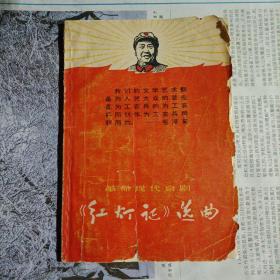 我们的文学艺术都
是为人民大众的，首先
是为工农兵的，为工农
兵而创作，为工农兵所
利用的。 毛泽东
革命现代京剧
《红灯记》选曲